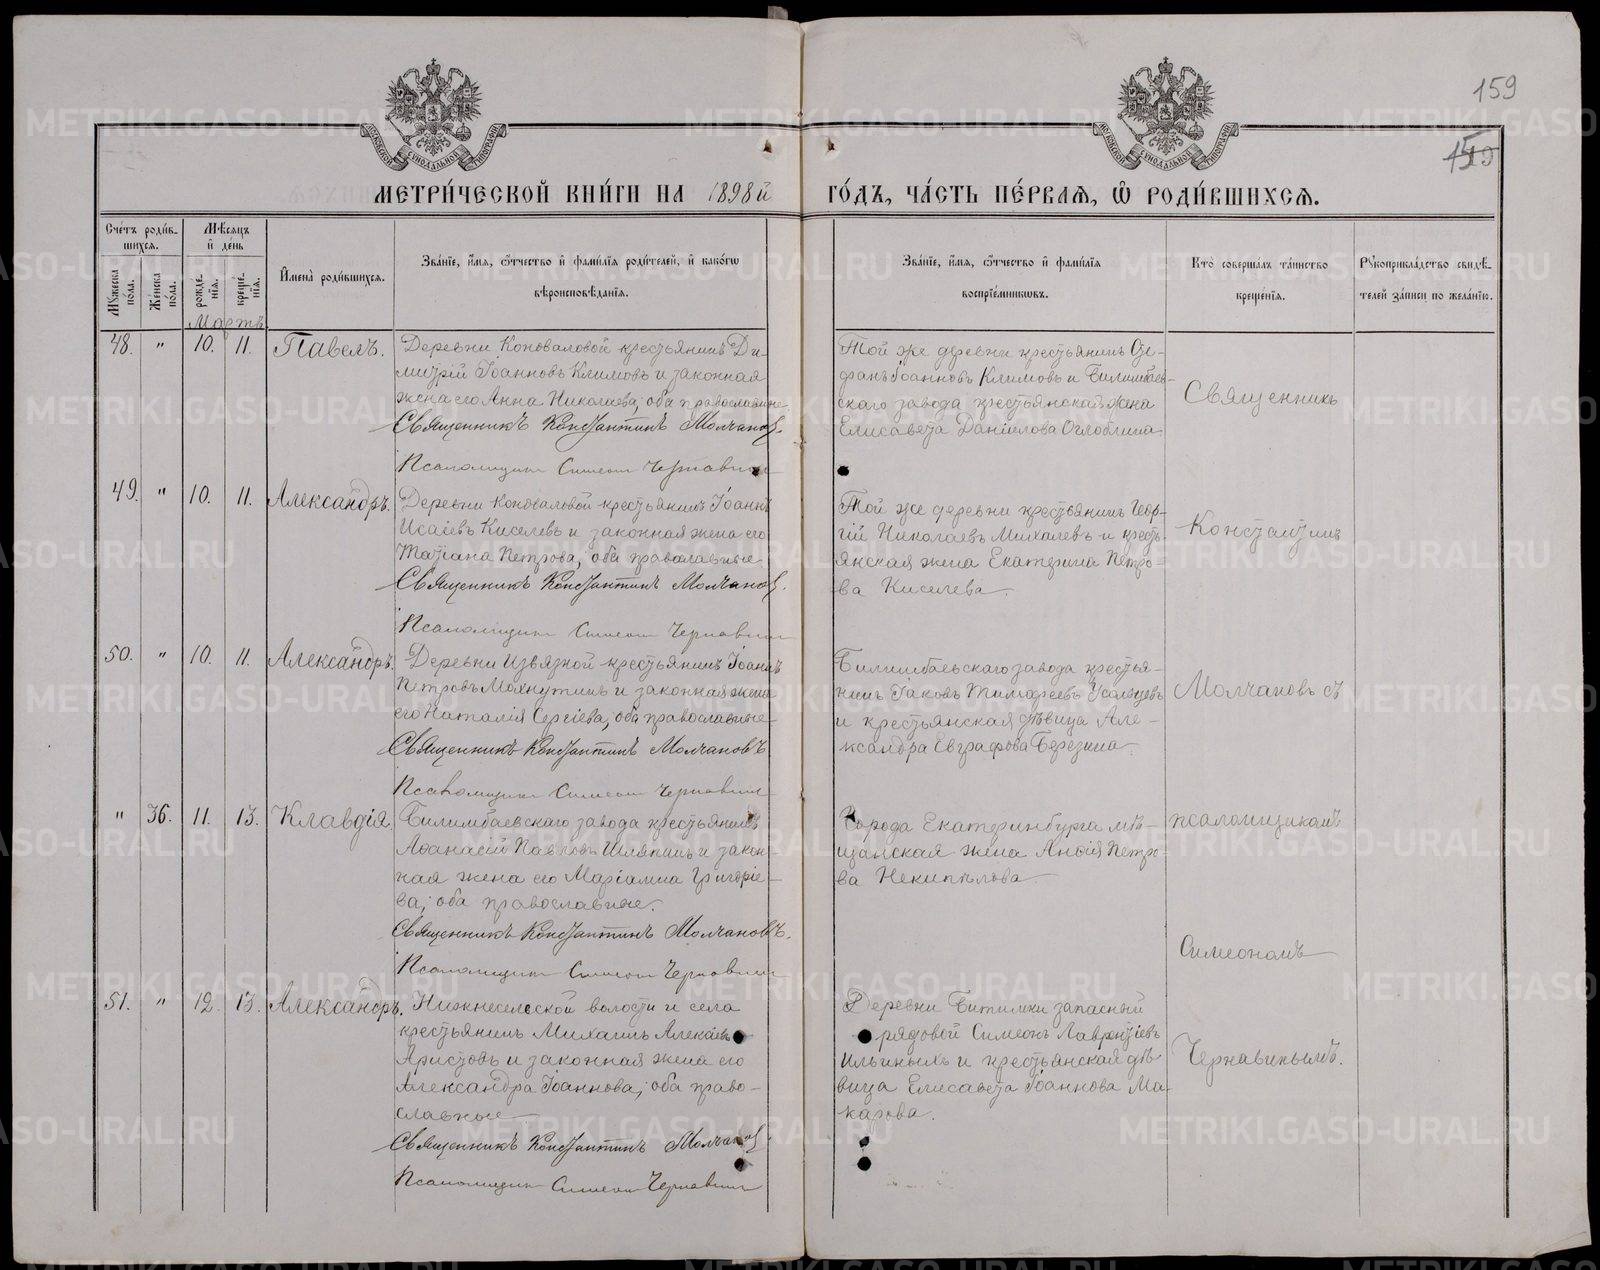 159
МЕТРИ́ЧЕСКОЙ КНИ́ГИ НА 1898й ГО́ДЪ, ЧА́СТЬ ПЕ́РВАѦ, Ѿ РОДИ́ВШИХСѦ.
Сче́тъ роди́вшихсѧ.
Мѣ́сяцъ и҆ де́нь
Мꙋ́жеска по́ла.
Же́нска по́ла.
рожде́нїѧ.
креще́нїѧ.
И҆мена̀ роди́вшихсѧ.
Зва́нїе, и҆́мѧ, ѻ҆́тчество и҆ фамі́лїѧ роди́телей, и҆ како́гѡ
вѣроисповѣ́данїѧ.
Зва́нїе, и҆́мѧ, ѻ҆́тчество и҆ фамі́лїѧ
воспрїе́мникѡвъ.
Кто̀ соверша́лъ та́инство
креще́нїѧ.
Рꙋкоприкла́дство свидѣ́-
телей за́писи по жела́нїю.
Мартъ
48. " 10. 11. Павелъ.
Деревни Коноваловой крестьянинъ Ди-
митрій Іоанновъ Климовъ и законная
жена его Анна Николаева; оба православные
Священникъ Константинъ Молчановъ.
Псаломщикъ Симеонъ Чернавинъ
Той же деревни крестьянинъ Сте-
фанъ Іоанновъ Климовъ и Билимбаев-
скаго завода крестьянская жена
Елисавета Даніилова Оглоблина
Священникъ
49. " 10. 11. Александръ.
Деревни Коноваловой крестьянинъ Іоаннъ
Исаіевъ Киселевъ и законная жена его
Татіана Петрова; оба православные
Священникъ Константинъ Молчановъ.
Псаломщикъ Симеонъ Чернавинъ
Той же деревни крестьянинъ Геор-
гій Николаевъ Михалевъ и кресть-
янская жена Екатерина Петро-
ва Киселева.
Константинъ
50. " 10. 11. Александръ.
Деревни Извязной крестьянинъ Іоаннъ
Петровъ Махнутинъ и законная жена
его Наталія Сергіева; оба православные
Священникъ Константинъ Молчановъ
Псаломщикъ Симеонъ Чернавинъ
Билимбаевскаго завода крестья-
нинъ Іаковъ Тимофеевъ Усольцевъ
и крестьянская дѣвица Але-
ксандра Евграфова Березина.
Молчановъ съ
" 36. 11. 13. Клавдія
Билимбаевскаго завода крестьянинъ
Аѳанасій Павловъ Шляпинъ и закон-
ная жена его Маріамна Григорье-
ва; оба православные.
Священникъ Константинъ Молчановъ.
Псаломщикъ Симеонъ Чернавинъ
Города Екатеринбурга мѣ-
щанская жена Анфія Петро-
ва Некипѣлова.
псаломщикомъ
Симеономъ
51. " 12. 13. Александръ.
Нижнесельской волости и села
крестьянинъ Михаилъ Алексіевъ
Аристовъ и законная жена его
Александра Іоаннова; оба право-
славные
Священникъ Константинъ Молчановъ
Псаломщикъ Симеонъ Чернавинъ
Деревни Битимки запасный
рядовой Симеонъ Лаврентіевъ
Ильиныхъ и крестьянская дѣ-
вица Елисавета Іоаннова Ма-
карова.
Чернавинымъ.
METRIKI.GASO-URAL.RU